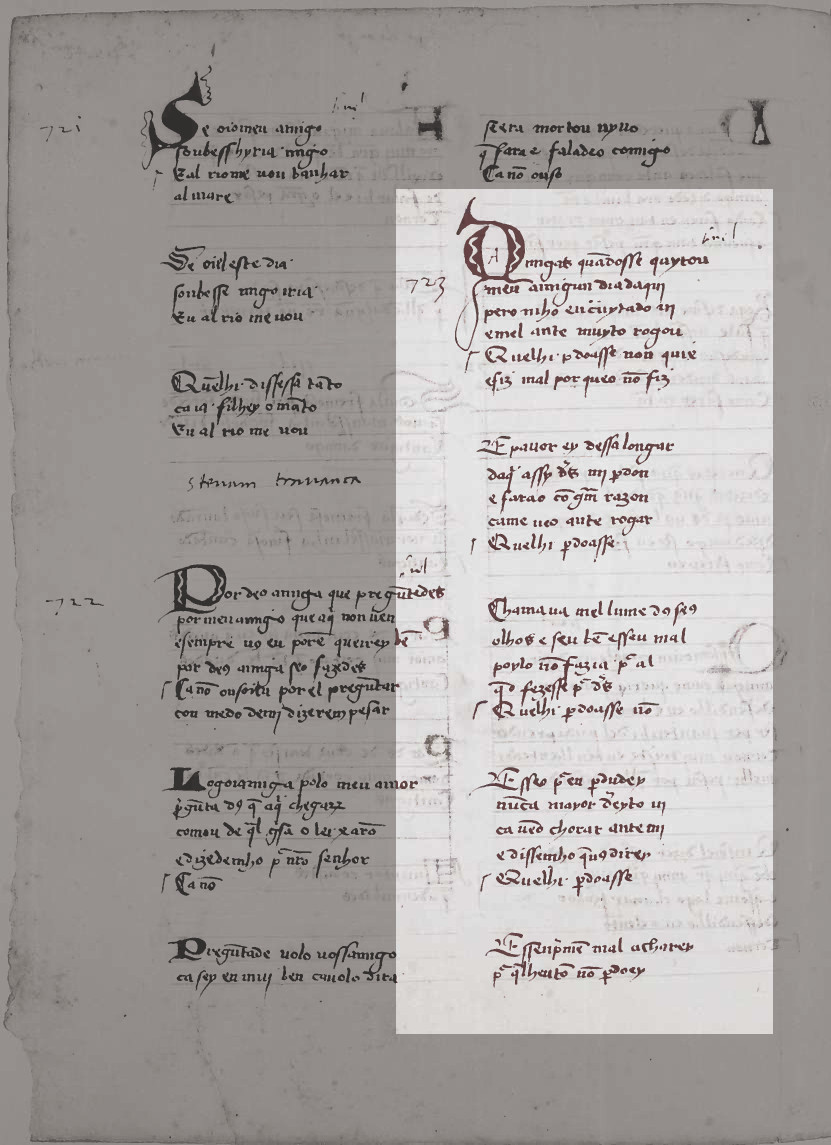 721
Se oiomeu amigo
soubess hyria migo
Eal rio me uou banhar
al mare
Se oiel este dia
soubesse migo iria
Eu al rio me uou
Quēlhi dissessa tāto
ca ia filhey o māto
Eu al rio me uou
steuam trauanca
722
Por deo amiga que preguntedes
por meu amigo que aq̄ non uen
esempre u9 eu porē querrey bē
par de9 amiga seo fazedes
Ca nō ousoitu por el preguntar
con medo demj dizerem pesar
Logoiamiga polo meu amor
p̄gūta d9 q̄ aq̄ chegarē
comou de q̄l gsā o leixarō
edizedemho p̄ nr̄o senhor
Ca nō
Pregūtade uolo uossamigo
ca sey en mui ben cauolo dira
seera mortou uyuo
q̄ fara e faladeo comigo
Ca nō ouso
723
Amigas quādosse quytou
meu amigun dia daqui
pero mho eu cuytado ui
emel ante muyto rogou
Quelhi p̄doasse non quix
efiz mal por queo nō fiz
E pauor ey dessa longar
daq̄ assy d̄s mi p̄don
e farao cō grā razon
came ueo ante rogar
Quelhi p̄doasse
Chamaua mel lume d9 se9
olhos e seu bē esseu mal
poylo nō fazia p̄ al
q̄o fezesse p̄ d̄s
Quelhi p̄doasse nō
Esseo p̄en p̄dudey
nūca mayor d̄eyto ui
ca ueō chorar ante mi
edissemho q̄u9direy
Quelhi p̄doasse
Essenp̄me mal acharey
p̄ q̄lhentō nō p̄doey